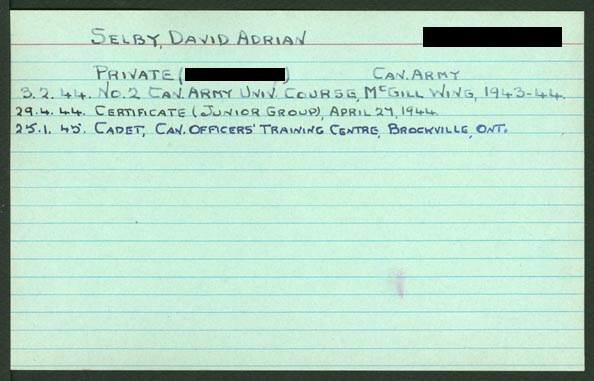 SELBY, DAVID ADRIAN
PRIVATE ( ) CAN. ARMY
3.2.44. NO.2 CAN. ARMY UNIV. COURSE, MCGILL WING, 1943-44.
29.4.44. CERTIFICATE (JUNIOR GROUP), APRIL 27, 1944.
25.1.45. CADET, CAN. OFFICERS' TRAINING CENTRE, BROCKVILLE, ONT.